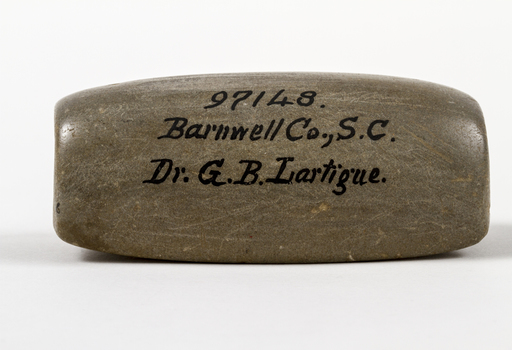 97148.
Barnwell Co., S.C.
Dr. G.B. Lartigue.